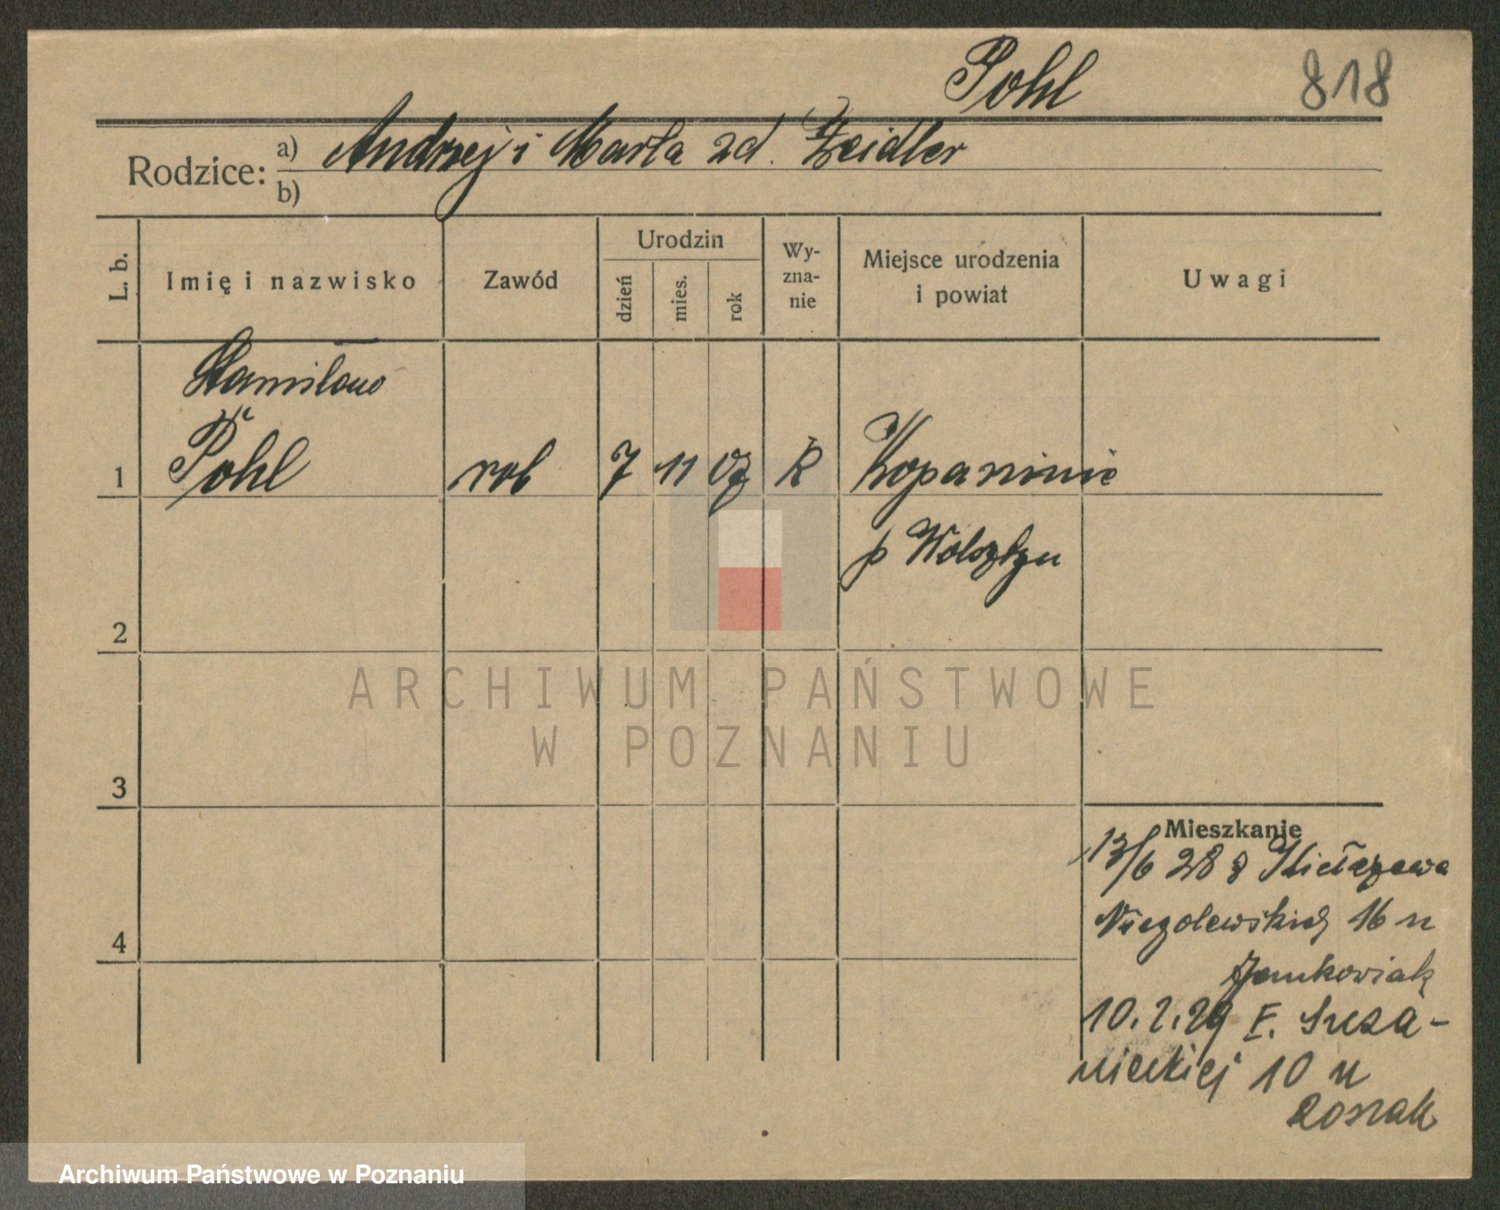 Pohl 818
Rodzice: a) Andrzej i Marta zd. Zeidler
b)
L. b. Imię i nazwisko Zawód Urodzin dzień mies. rok Wy-zna-nie Miejsce urodzenia i powiat Uwagi
Stanisław
1 Pohl rob 7 11 07 R Kopaninie
p Wolsztyn
2
3
4
Mieszkanie
13/6 28 z Kiełczewa
Niegolewskich 16 u
Jankowiak
10.2.29 F.
nieckiej 10 u
Rossak
ARCHIWUM PAŃSTWOWE
W POZNANIU
Archiwum Państwowe w Poznaniu